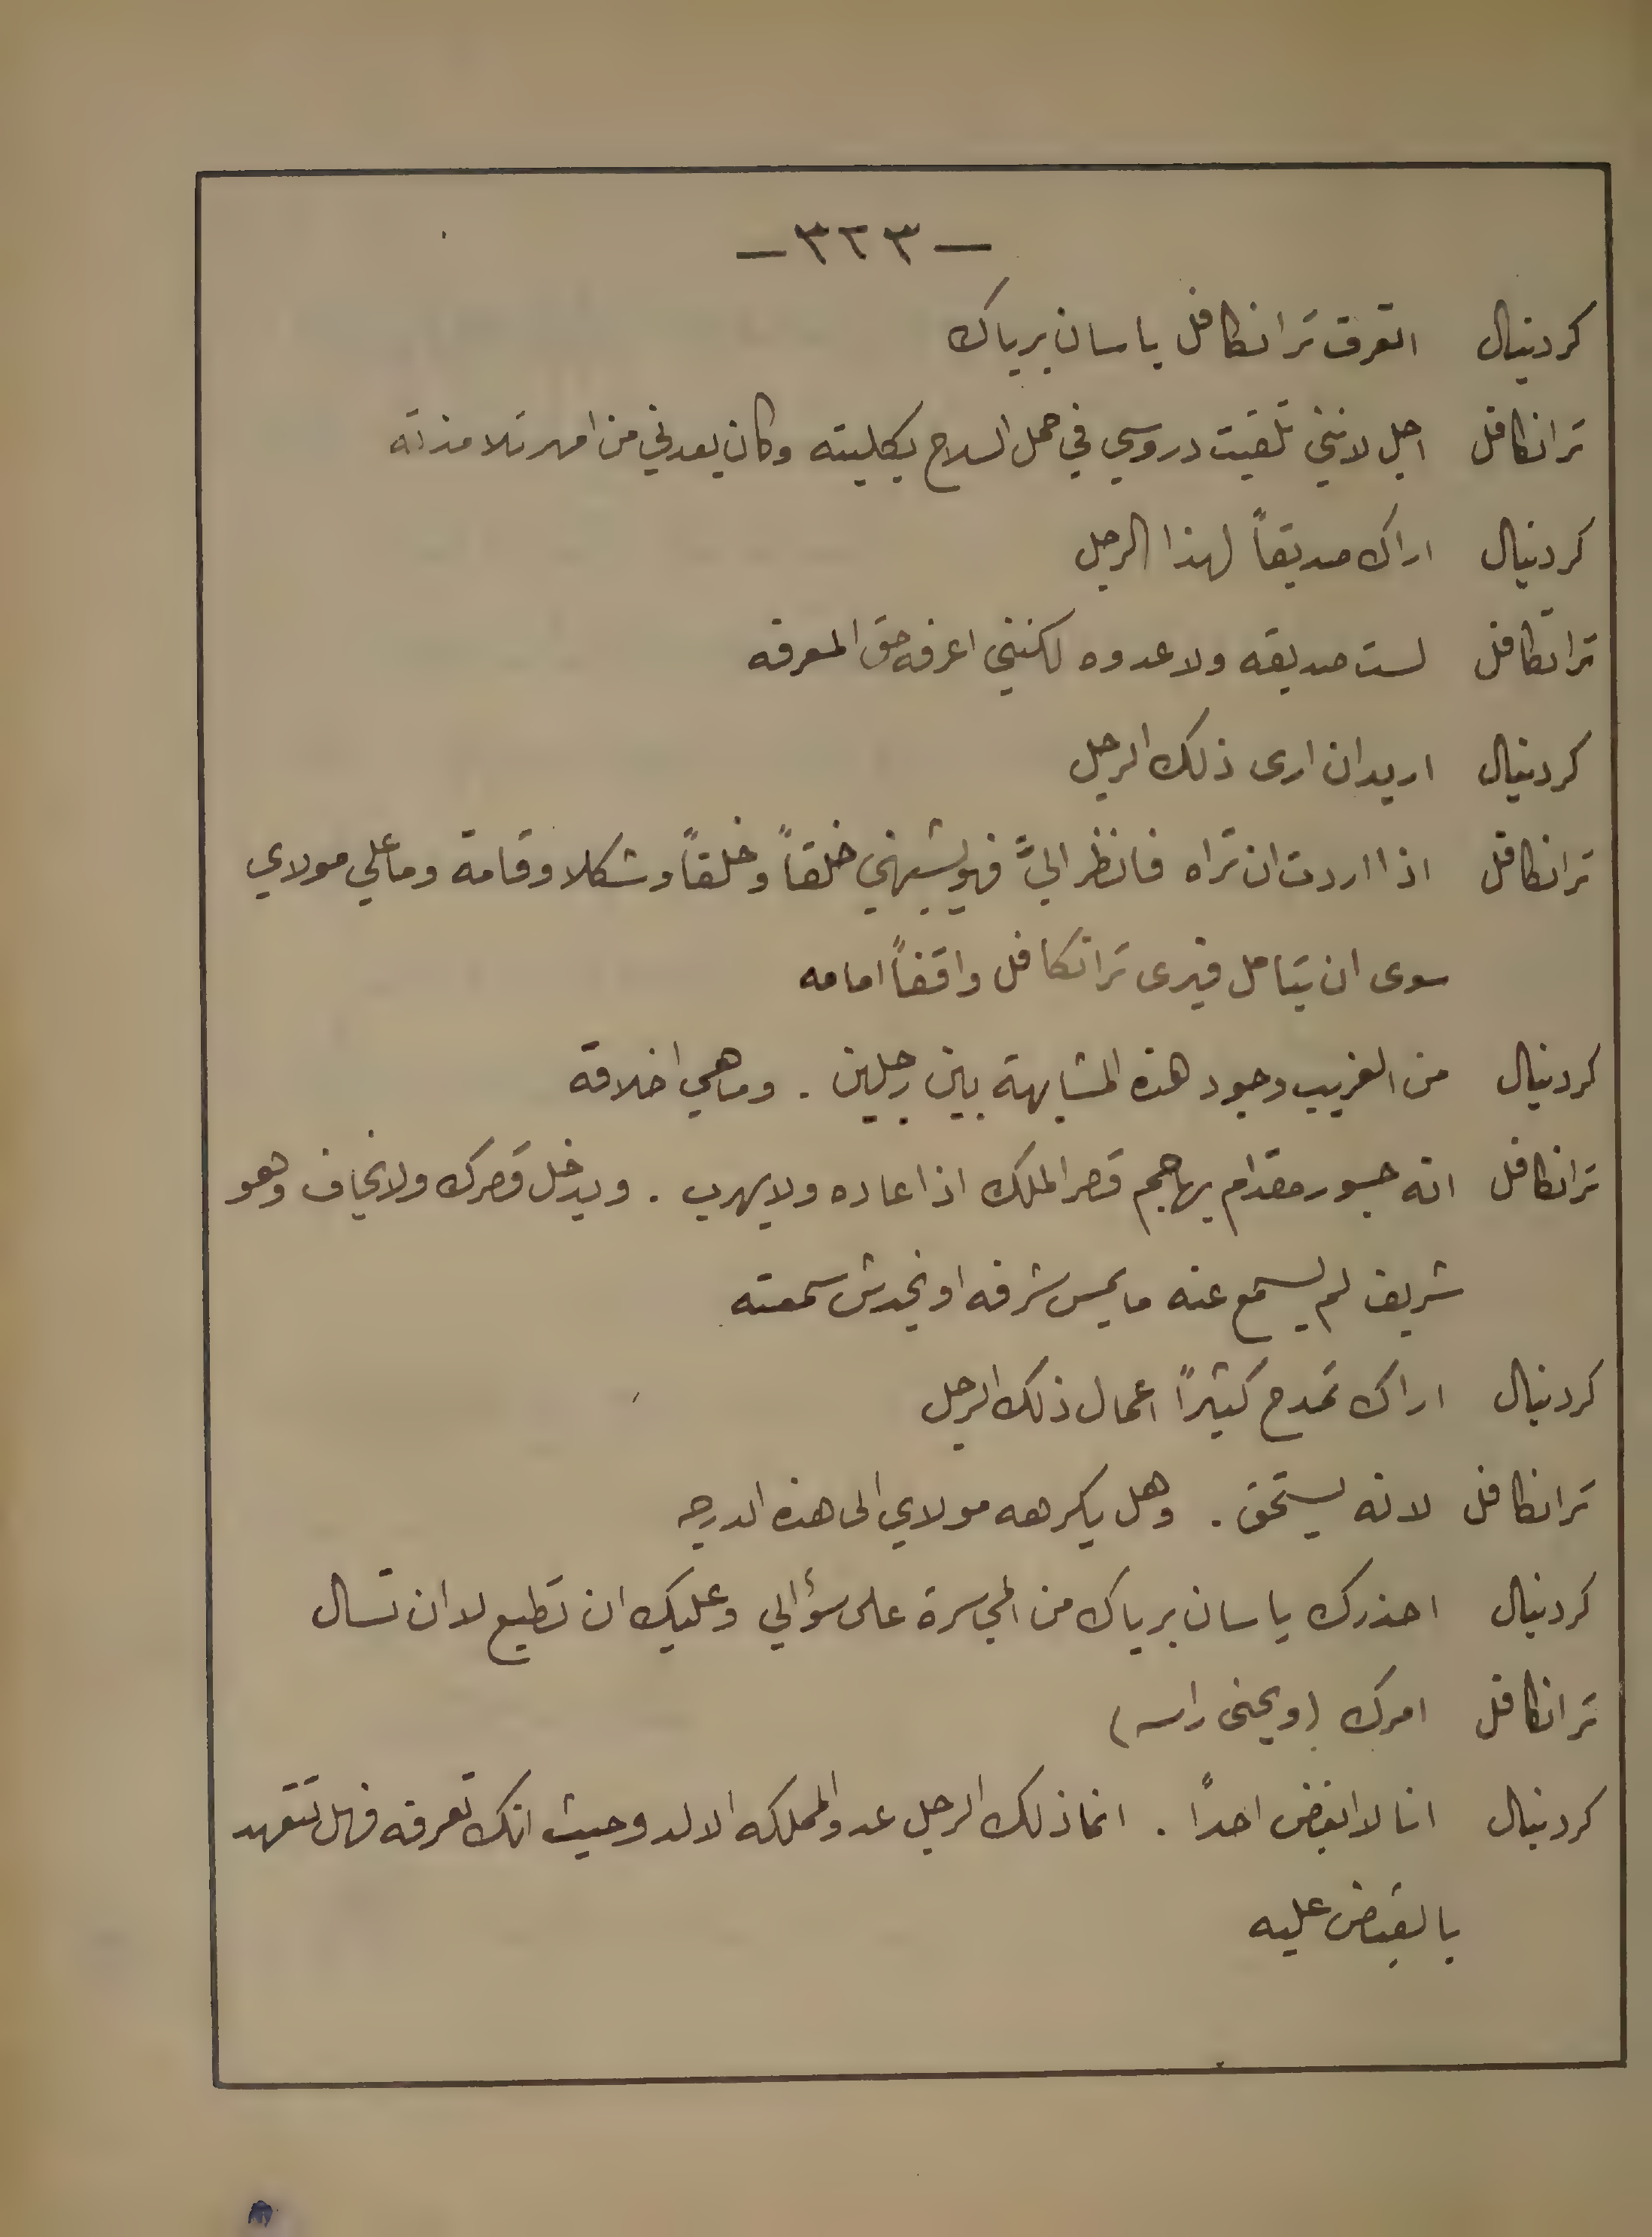 — ٣٢٣ —
كردنيال اتعرف ترانكافل يا سان برياك
ترانكافل اجل لانني تلقيت دروسي في حمل السلاح بكليته وكان يعدني من امهر تلامذته
كردنيال اراك صديقاً لهذا الرجل
ترانكافل لست صديقه ولا عدوه لكنني اعرفه حق المعرفه
كردنيال اريد ان ارى ذلك الرجل
ترانكافل اذا اردت ان تراه فانظر اليَّ فهو يشبهني خلقاً وخلقاً وشكلا وقامة وما على مولاي
سوى ان يتامل فيرى ترانكافل واقفاً امامه
كردنيال من الغريب وجود هذه المشابهة بين رجلين . وما هي اخلاقه
ترانكافل انه جسور مقدام يهاجم قصر الملك اذا عاده ولا يهرب . ويدخل قصرك ولا يخاف وهو
شريف لم يسمع عنه ما يمس شرفه او يخدش سمعته
كردنيال اراك تمدح كثيراً اعمال ذلك الرجل
ترانكافل لانه يستحق . وهل يكرهه مولاي الى هذه الدرجه
كردنيال احذرك يا سان برياك من الجسرة على سؤالي وعليك ان تطيع لا ان تسال
ترانكافل امرك (ويحنى راسه)
كردنيال انا لا ابغض احداً . انما ذلك الرجل عدو المملكه الالد وحيث انك تعرفه فهل تتعهد
بالقبض عليه